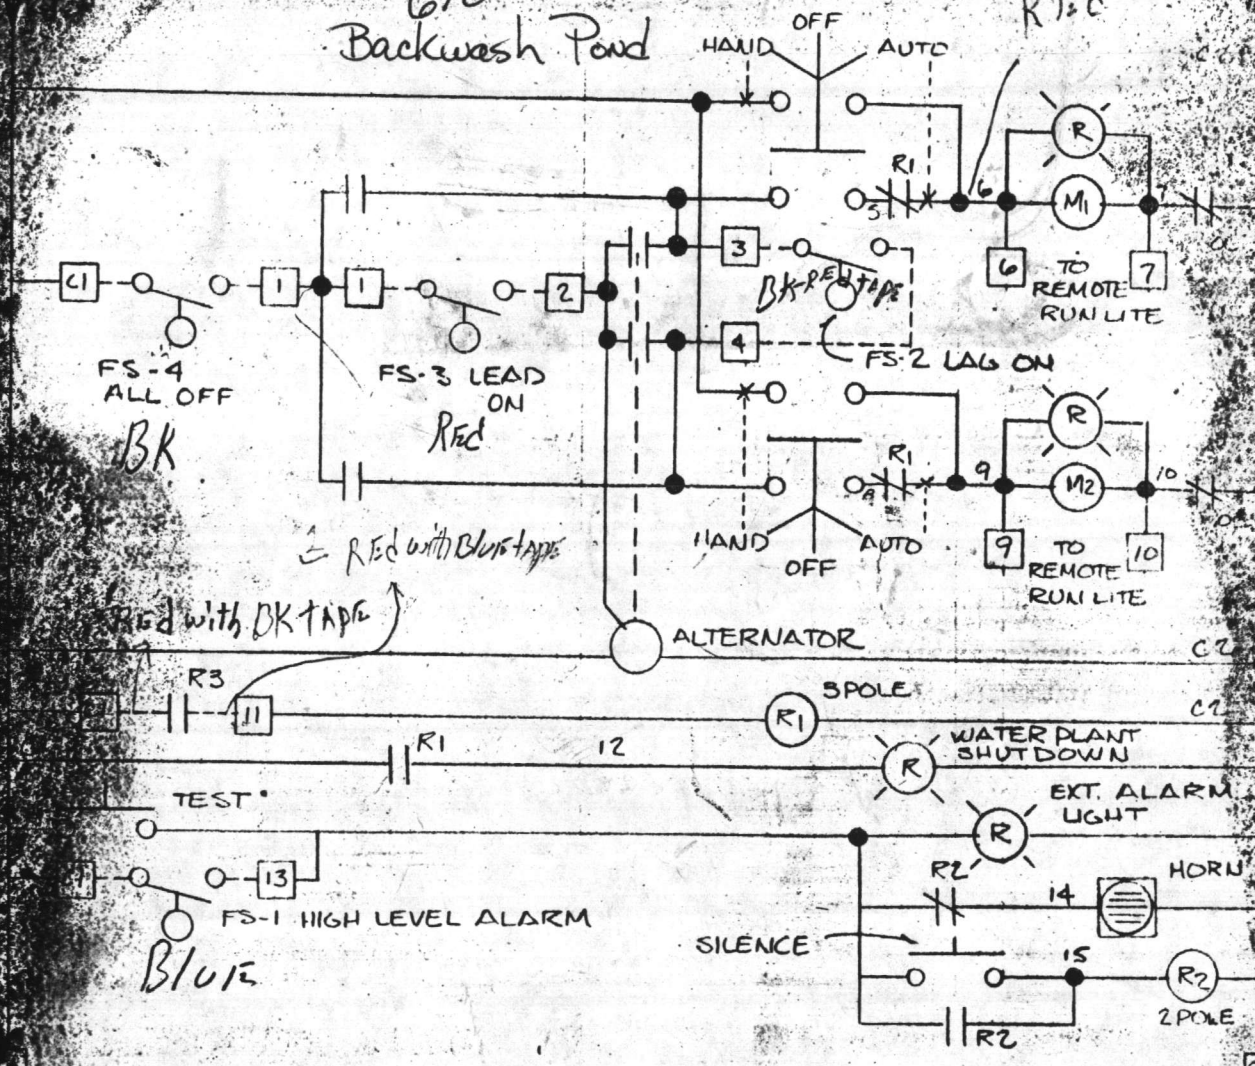 Backwash Pond
HAND
OFF
AUTO
R
R1
5
6
M1
C1
1
1
2
3
BK-RED TAPE
6
TO
REMOTE
RUN LITE
7
FS-4
ALL OFF
BK
FS-3 LEAD
ON
Red
4
FS-2 LAG ON
R
R1
8
9
M2
10
HAND
OFF
AUTO
9
TO
REMOTE
RUN LITE
10
Red with Blue tape
Red with BK tape
ALTERNATOR
C2
R3
11
R1
3POLE
C2
R1
12
R
WATER PLANT
SHUTDOWN
TEST
EXT. ALARM
LIGHT
R
13
FS-1 HIGH LEVEL ALARM
Blue
R2
14
HORN
SILENCE
15
R2
2POLE
R2